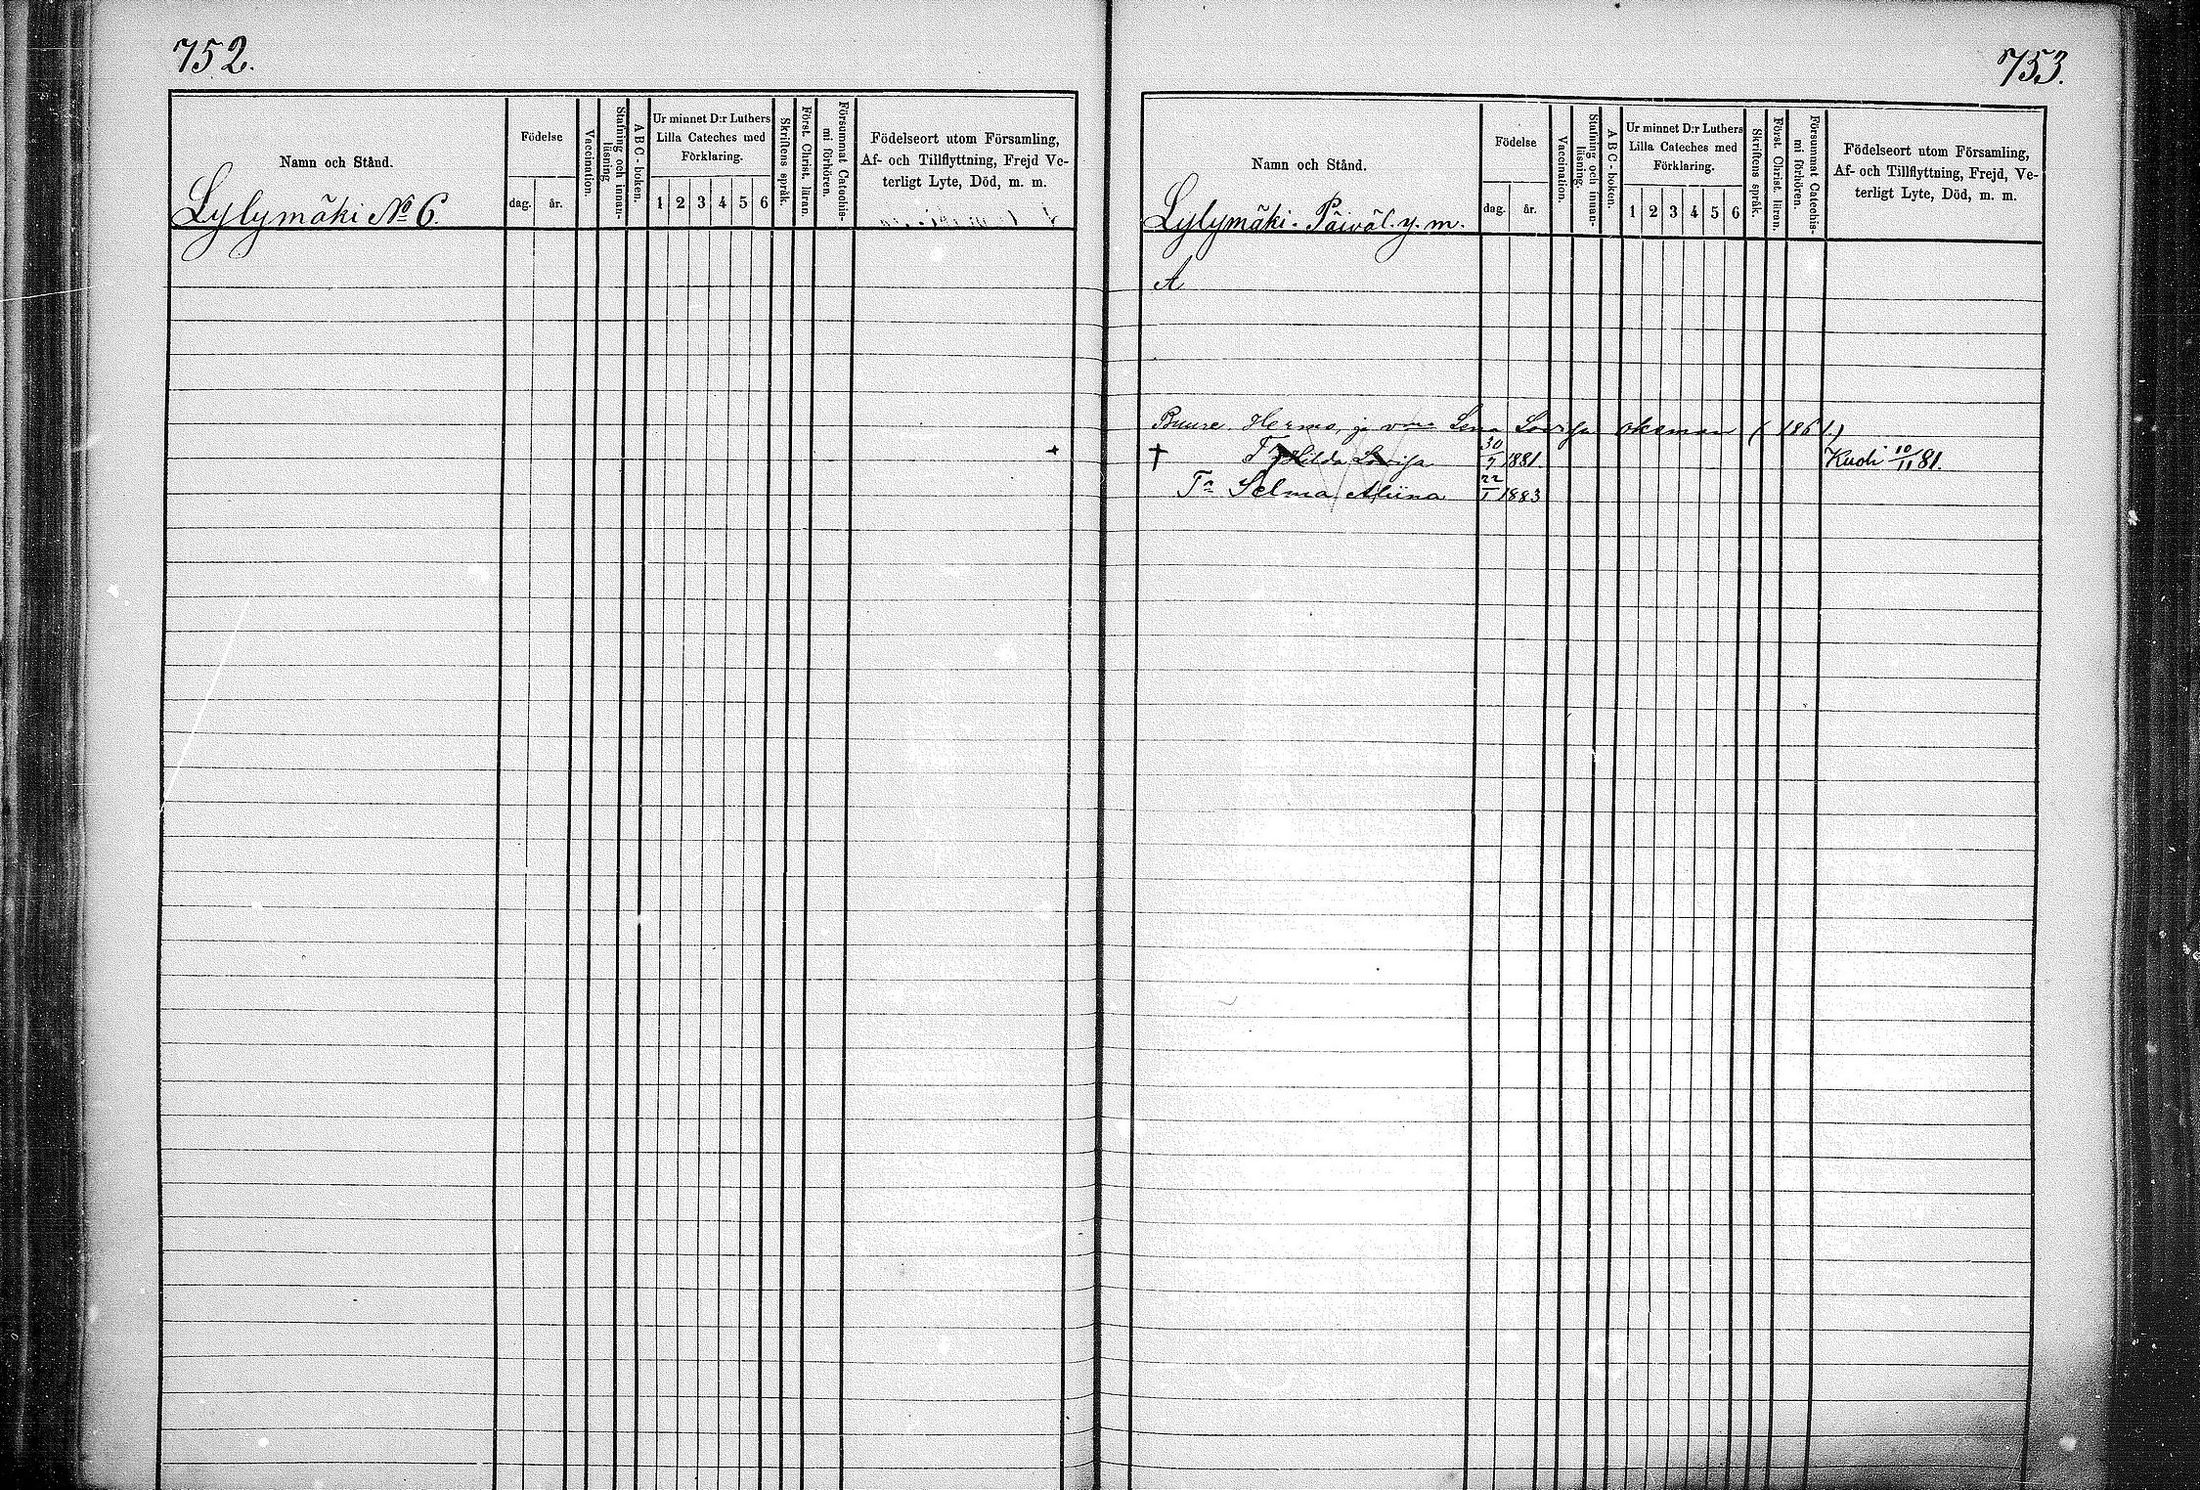 752.
Namn och Stånd.
Lylymäki No 6.
Födelse
dag.
år.
Vaccination.
Stafning och innan-
läsning
ABC-boken.
Ur minnet D:r Luthers
Lilla Cateches med
Förklaring.
1 2 3 4 5 6
Skriftens språk.
Först. Christ. läran.
Försummat Catechis-
mi förhören.
Födelseort utom Församling,
Af- och Tillflyttning, Frejd Ve-
terligt Lyte, Död, m. m.
753.
Namn och Stånd.
Lylymäki. Päiväl. y. m.
Födelse
dag.
år.
Vaccination.
Stafning och innan-
läsning.
ABC-boken.
Ur minnet D:r Luthers
Lilla Cateches med
Förklaring.
1 2 3 4 5 6
Skriftens språk.
Först. Christ. läran.
Försummat Catechis-
mi förhören.
Födelseort utom Församling,
Af- och Tillflyttning, Frejd, Ve-
terligt Lyte, Död, m. m.
A
Herms, ja Lena Lovisa (1861.)
† Hilda Lovisa 30/7 1881. Kuoli 10/11 81.
Tr Selma Aliina 22/1 1883